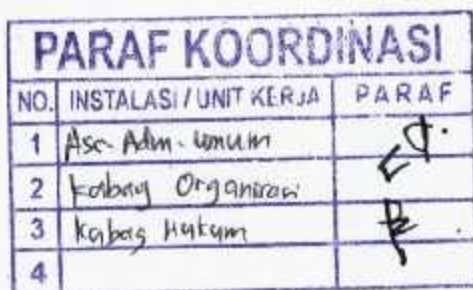 PARAF KOORDINASI
NO. INSTALASI / UNIT KERJA PARAF
1 Asc. Adm. Umum
2 Kabag Organisasi
3 Kabag Hukum
4